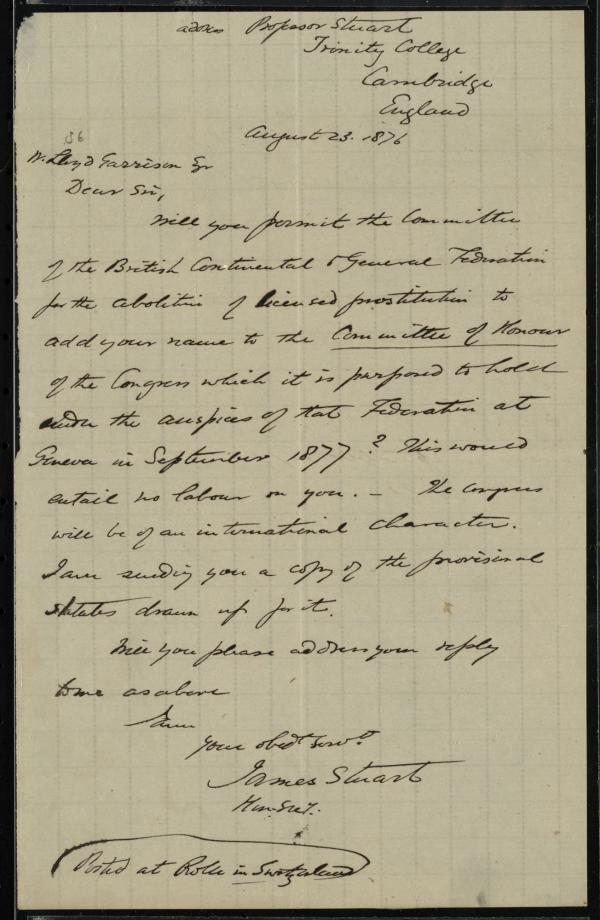 address Professor Stuart
Trinity College
Cambridge
England
August 23. 1876
W. Lloyd Garrison Esqr
Dear Sir,
Will you permit the Committee
of the British Continental & General Federation
for the abolition of licensed prostitution to
add your name to the Committee of Honour
of the Congress which it is purposed to hold
under the auspices of that Federation at
Geneva in September 1877? This would
entail no labour on you. – The Congress
will be of an international character.
I am sending you a copy of the provisional
statutes drawn up for it.
Will you please address your reply
to me as above
I am
Your obedt servt.
James Stuart
Hon. Sec.
Posted at Rolle in Switzerland